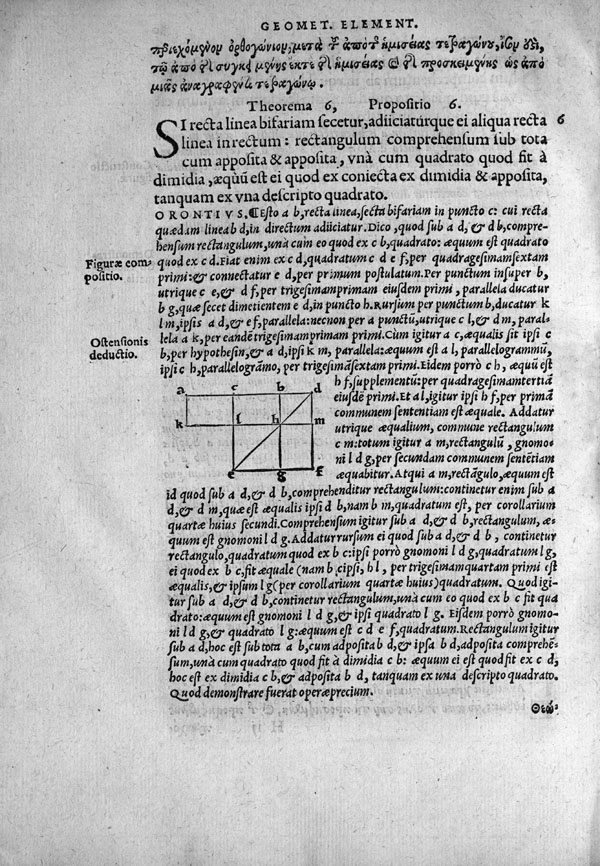 GEOMET. ELEMENT.
Theorema 6, Propositio 6.
SI recta linea bifariam secetur, adiiciatúrque ei aliqua recta 6
linea in rectum: rectangulum comprehensum sub tota
cum apposita & apposita, vnà cum quadrato quod fit à
dimidia, æquū est ei quod ex coniecta ex dimidia & apposita,
tanquam ex vna descripto quadrato.
ORONTIVS. ¶Esto a b, recta linea, secta bifariam in puncto c: cui recta
quædam lineab d, in directum adiiciatur. Dico, quod sub a d, & d b, compre-
hensum rectangulum, unà cum eo quod ex c b, quadrato: æquum est quadrato
quod ex c d. Fiat enim ex c d, quadratum c d e f, per quadragesimamsextam
Figuræ com-
positio.
primi: & connectatur e d, per primum postulatum. Per punctum insuper b,
utrique c e, & d f, per trigesimamprimam eiusdem primi, parallela ducatur
b g, quæ secet dimetientem e d, in puncto h. Rursum per punctum h, ducatur k
l m, ipsis a d, & e f, parallela: necnon per a punctū, utrique c l, & d m, paral-
Ostensionis
deductio.
lela a k, per eandē trigesimamprimam primi. Cum igitur a c, æqualis sit ipsi c
b, per hypothesin, & a d, ipsi k m, parallela: æquum est a l, parallelogrammū,
ipsi c h, parallelogrāmo, per trigesimāsextam primi. Eidem porrò c h, æquū est
h f, supplementū: per quadragesimamtertiā
eiusdē primi. Et a l, igitur ipsi h f, per primam
communem sententiam est æquale. Addatur
utrique æqualium, commune rectangulum
c m: totum igitur a m, rectangulū, gnomo-
ni l d g, per secundam communem sentētiam
æquabitur. Atqui a m, rectāgulo, æquum est
a c b d
k l h m
e g f
id quod sub a d, & d b, comprehenditur rectangulum: continetur enim sub a
d, & d m, quæ est æqualis ipsi d b, nam b m, quadratum est, per corollarium
quartæ huius secundi. Comprehensum igitur sub a d, & d b, rectangulum, æ-
quum est gnomoni l d g. Addatur rursum ei quod sub a d, & d b, continetur
rectangulo, quadratum quod ex b c: ipsi porrò gnomoni l d g, quadratum l g,
ei quod ex b c, fit æquale (nam b c, ipsi, h l, per trigesimamquartam primi est
æqualis, & ipsum l g (per corollarium quartæ huius) quadratum. Quod igi-
tur sub a d, & d b, continetur rectangulum, unà cum eo quod ex b c fit qua
drato: æquum est gnomoni l d g, & ipsi quadrato l g. Eisdem porrò gnomo-
ni l d g, & quadrato l g: æquum est c d e f, quadratum. Rectangulum igitur
sub a d, hoc est sub tota a b, cum adposita b d, & ipsa b d, adposita comprehē-
sum, unà cum quadrato quod fit à dimidia c b: æquum ei est quod fit ex c d,
hoc est ex dimidia c b, & adposita b d, tanquam ex una descripto quadrato.
Quod demonstrare fuerat operæprecium.
Θεώ-